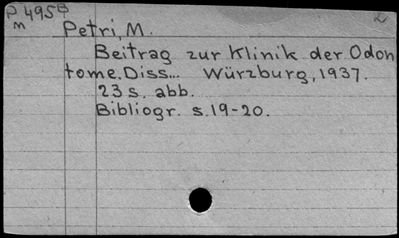 P 495B 2
m
Petri, M.
Beitrag zur Klinik der Odon
tome. Diss... Würzburg, 1937.
23 s. abb.
Bibliogr. s. 19-20.